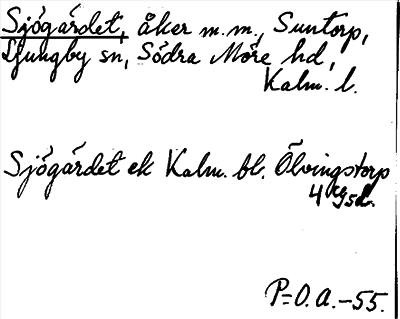 Sjögärdet, åker m.m., Suntorp,
Ljungby sn, Södra Möre hd,
Kalm. l.
Sjögärdet ek Kalm. bl. Ölvingstorp
4
P=O.A.-55.